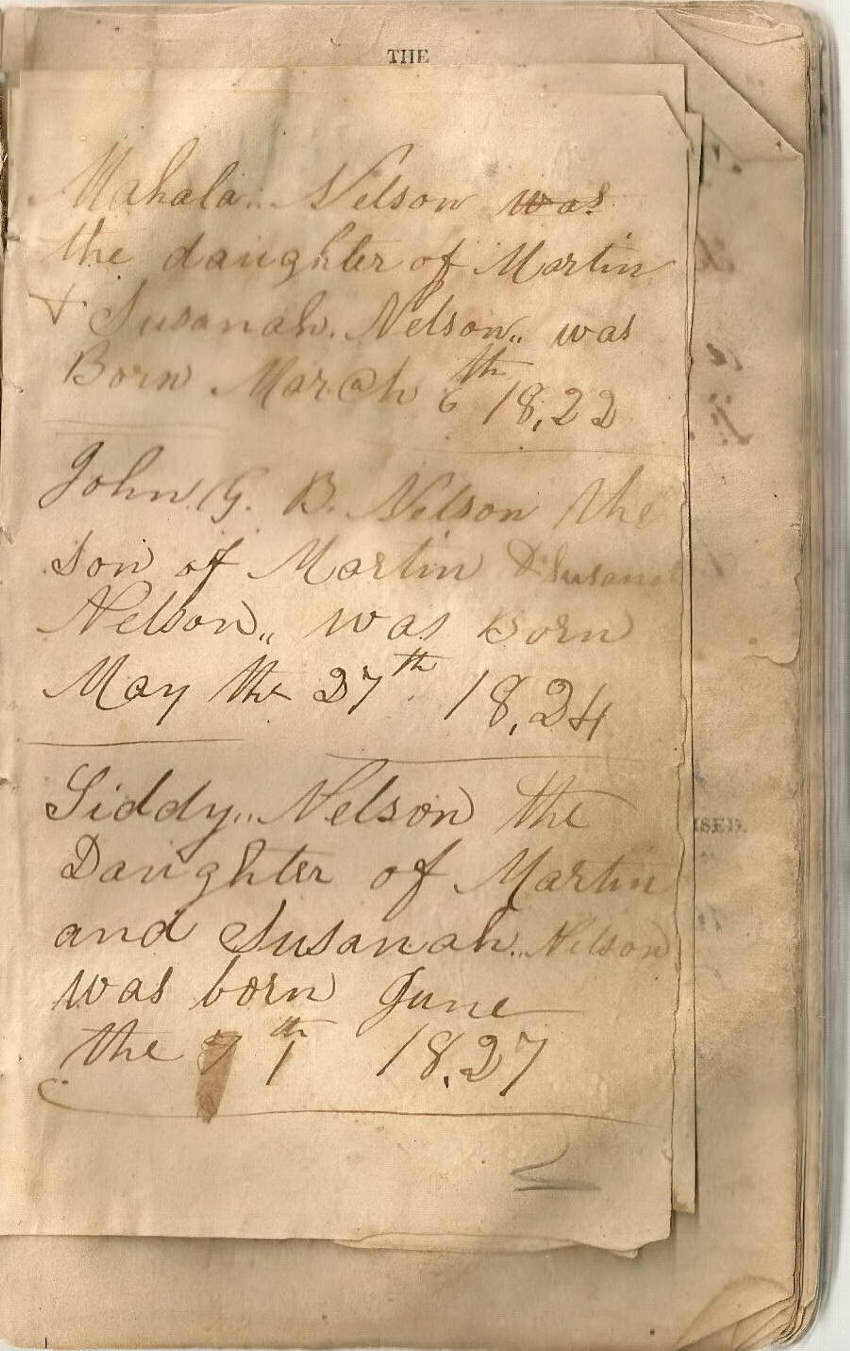 THE
Mahala.. Nelson was
the daughter of Martin
& Susanah. Nelson,, was
Born March 6th 18,22
John G. B. Nelson the
son of Martin & Susanah
Nelson,, was Born
May the 27th 18,24
Siddy,, Nelson the
Daughter of Martin
and Susanah.. Nelson
was born June
the 1th 18,27
ISED.